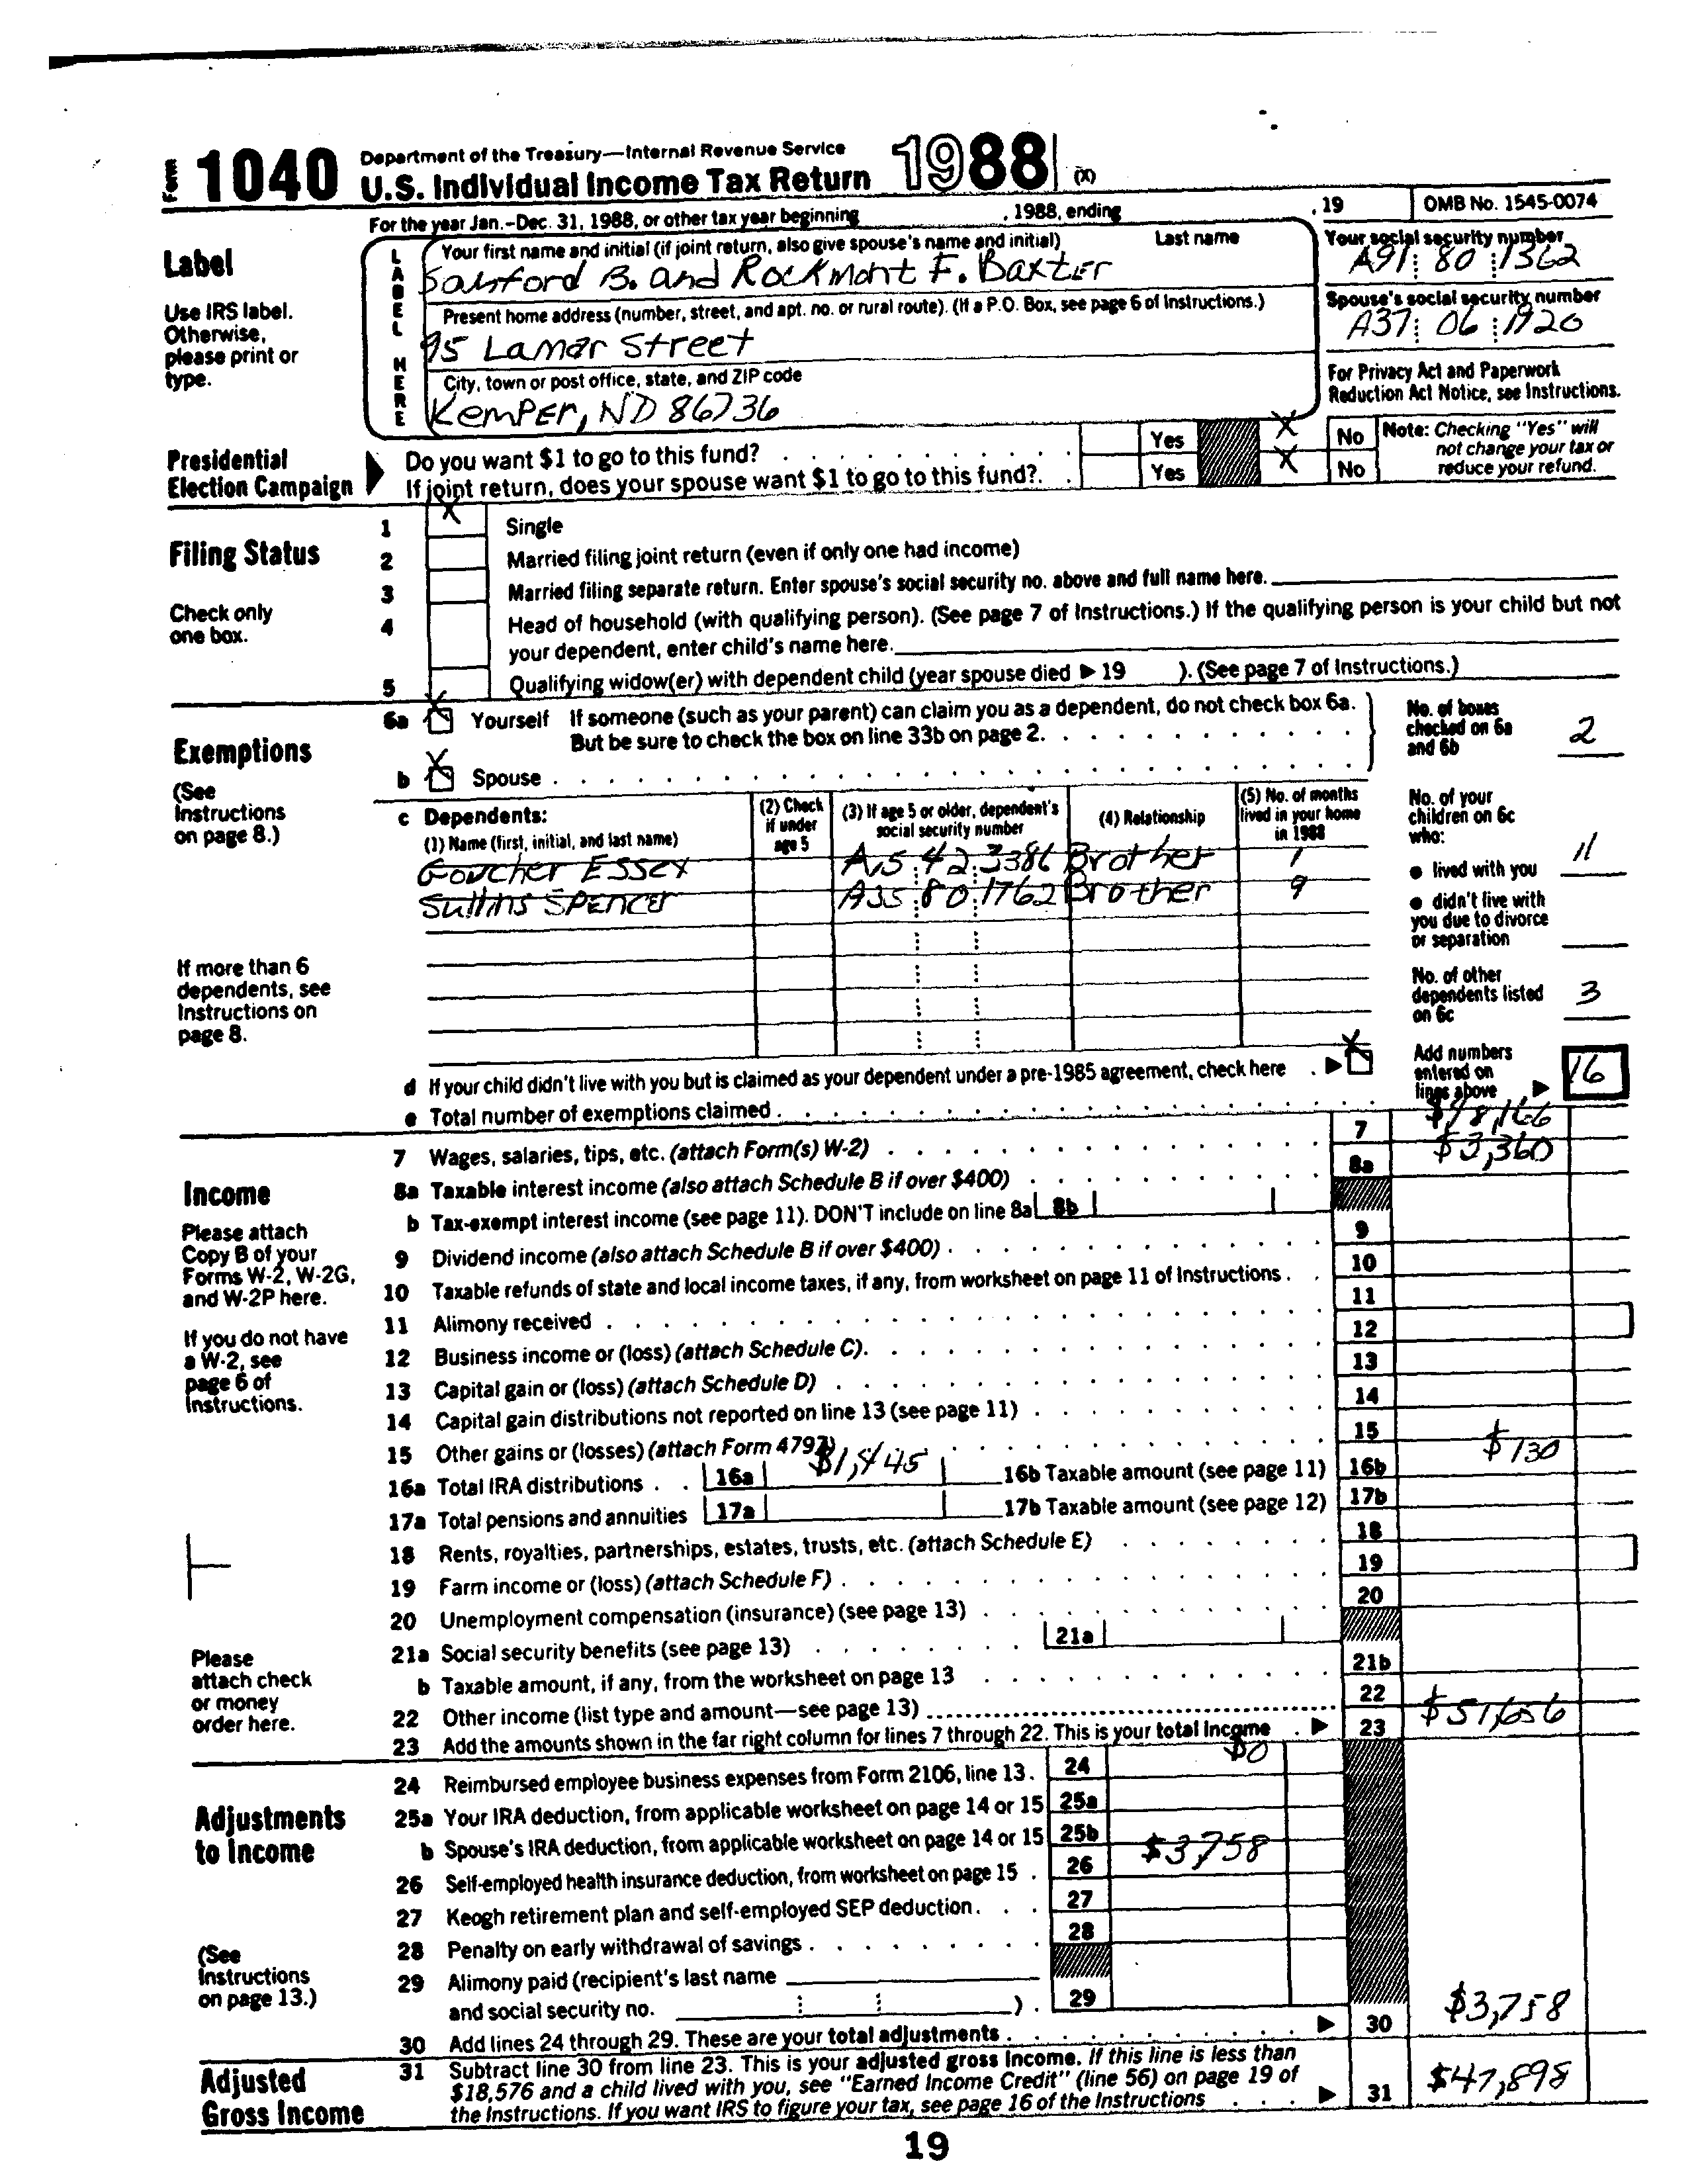 Form 1040 Department of the Treasury—Internal Revenue Service
U.S. Individual Income Tax Return 1988 (X)
For the year Jan.–Dec. 31, 1988, or other tax year beginning , 1988, ending , 19 OMB No. 1545-0074
Label
Use IRS label. Otherwise, please print or type.
LABEL HERE
Your first name and initial (if joint return, also give spouse's name and initial) Last name
Sanford B. and Rockmont F. Baxter
Your social security number
A91 80 1362
Present home address (number, street, and apt. no. or rural route). (If a P.O. Box, see page 6 of Instructions.)
95 Lamar Street
Spouse's social security number
A37 06 1920
City, town or post office, state, and ZIP code
Kemper, ND 86736
For Privacy Act and Paperwork Reduction Act Notice, see Instructions.
Presidential Election Campaign
Do you want $1 to go to this fund? Yes X No
If joint return, does your spouse want $1 to go to this fund? Yes X No
Note: Checking "Yes" will not change your tax or reduce your refund.
Filing Status
Check only one box.
1 X Single
2 Married filing joint return (even if only one had income)
3 Married filing separate return. Enter spouse's social security no. above and full name here.
4 Head of household (with qualifying person). (See page 7 of Instructions.) If the qualifying person is your child but not
your dependent, enter child's name here.
5 Qualifying widow(er) with dependent child (year spouse died ▶ 19 ). (See page 7 of Instructions.)
Exemptions
(See Instructions on page 8.)
6a X Yourself If someone (such as your parent) can claim you as a dependent, do not check box 6a.
But be sure to check the box on line 33b on page 2.
b X Spouse
No. of boxes checked on 6a and 6b 2
c Dependents:
(1) Name (first, initial, and last name)
(2) Check if under age 5
(3) If age 5 or older, dependent's social security number
(4) Relationship
(5) No. of months lived in your home in 1988
Goucher Essex Brother 1
Sullins Spencer A35 80 1762 Brother 9
If more than 6 dependents, see Instructions on page 8.
No. of your children on 6c who:
● lived with you 11
● didn't live with you due to divorce or separation
No. of other dependents listed on 6c 3
d If your child didn't live with you but is claimed as your dependent under a pre-1985 agreement, check here ▶ X
e Total number of exemptions claimed
Add numbers entered on lines above ▶ 16
Income
Please attach Copy B of your Forms W-2, W-2G, and W-2P here.
If you do not have a W-2, see page 6 of Instructions.
Please attach check or money order here.
7 Wages, salaries, tips, etc. (attach Form(s) W-2) 7 $48,166
8a Taxable interest income (also attach Schedule B if over $400) 8a $3,360
b Tax-exempt interest income (see page 11). DON'T include on line 8a 8b
9 Dividend income (also attach Schedule B if over $400) 9
10 Taxable refunds of state and local income taxes, if any, from worksheet on page 11 of Instructions 10
11 Alimony received 11
12 Business income or (loss) (attach Schedule C) 12
13 Capital gain or (loss) (attach Schedule D) 13
14 Capital gain distributions not reported on line 13 (see page 11) 14
15 Other gains or (losses) (attach Form 4797) 15
16a Total IRA distributions 16a $1,445 16b Taxable amount (see page 11) 16b $130
17a Total pensions and annuities 17a 17b Taxable amount (see page 12) 17b
18 Rents, royalties, partnerships, estates, trusts, etc. (attach Schedule E) 18
19 Farm income or (loss) (attach Schedule F) 19
20 Unemployment compensation (insurance) (see page 13) 20
21a Social security benefits (see page 13) 21a
b Taxable amount, if any, from the worksheet on page 13 21b
22 Other income (list type and amount—see page 13) 22
23 Add the amounts shown in the far right column for lines 7 through 22. This is your total income ▶ 23 $51,656
Adjustments to Income
(See Instructions on page 13.)
24 Reimbursed employee business expenses from Form 2106, line 13 24 $0
25a Your IRA deduction, from applicable worksheet on page 14 or 15 25a
b Spouse's IRA deduction, from applicable worksheet on page 14 or 15 25b
26 Self-employed health insurance deduction, from worksheet on page 15 26 $3,758
27 Keogh retirement plan and self-employed SEP deduction 27
28 Penalty on early withdrawal of savings 28
29 Alimony paid (recipient's last name
and social security no. ) 29
30 Add lines 24 through 29. These are your total adjustments ▶ 30 $3,758
Adjusted Gross Income
31 Subtract line 30 from line 23. This is your adjusted gross income. If this line is less than
$18,576 and a child lived with you, see "Earned Income Credit" (line 56) on page 19 of
the Instructions. If you want IRS to figure your tax, see page 16 of the Instructions ▶ 31 $47,898
19